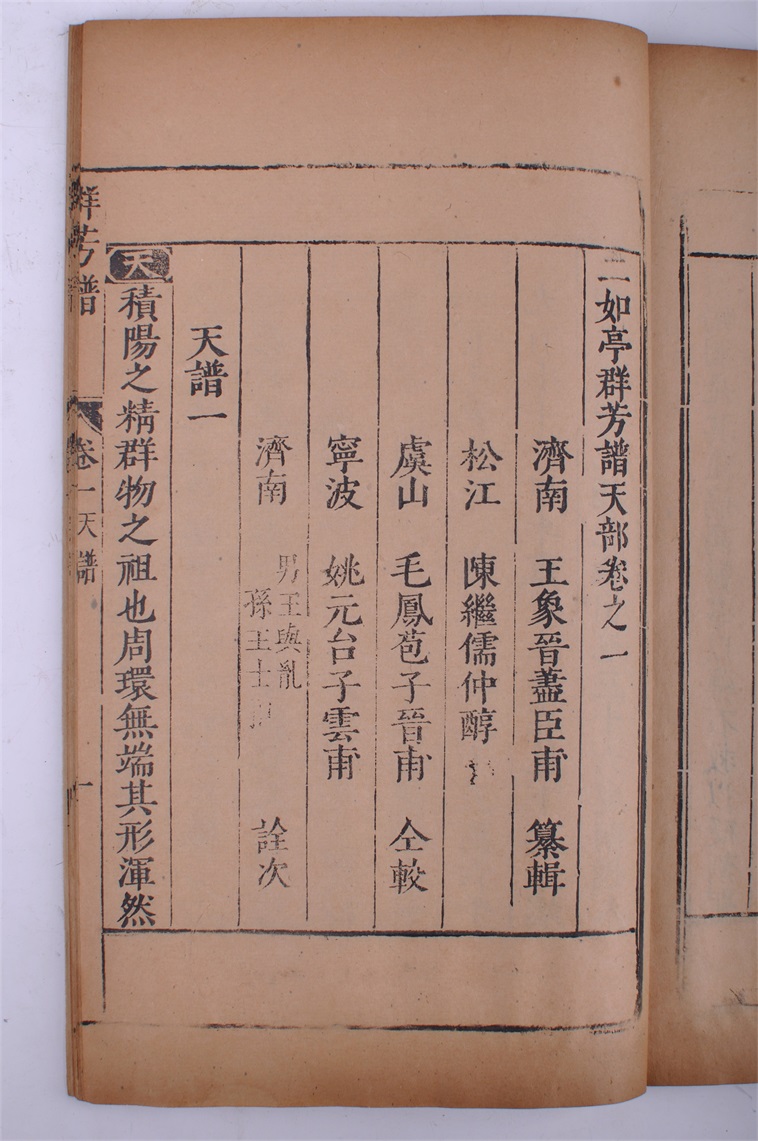 二如亭群芳譜天部卷之一
濟南 王象晉藎臣甫 纂輯
松江 陳繼儒仲醇
虞山 毛鳳苞子晉甫 仝較
寧波 姚元台子雲甫
濟南 男王與胤 詮次
孫王士
天譜一
天 積陽之精群物之祖也周環無端其形渾然
群芳譜 卷一 天譜 一